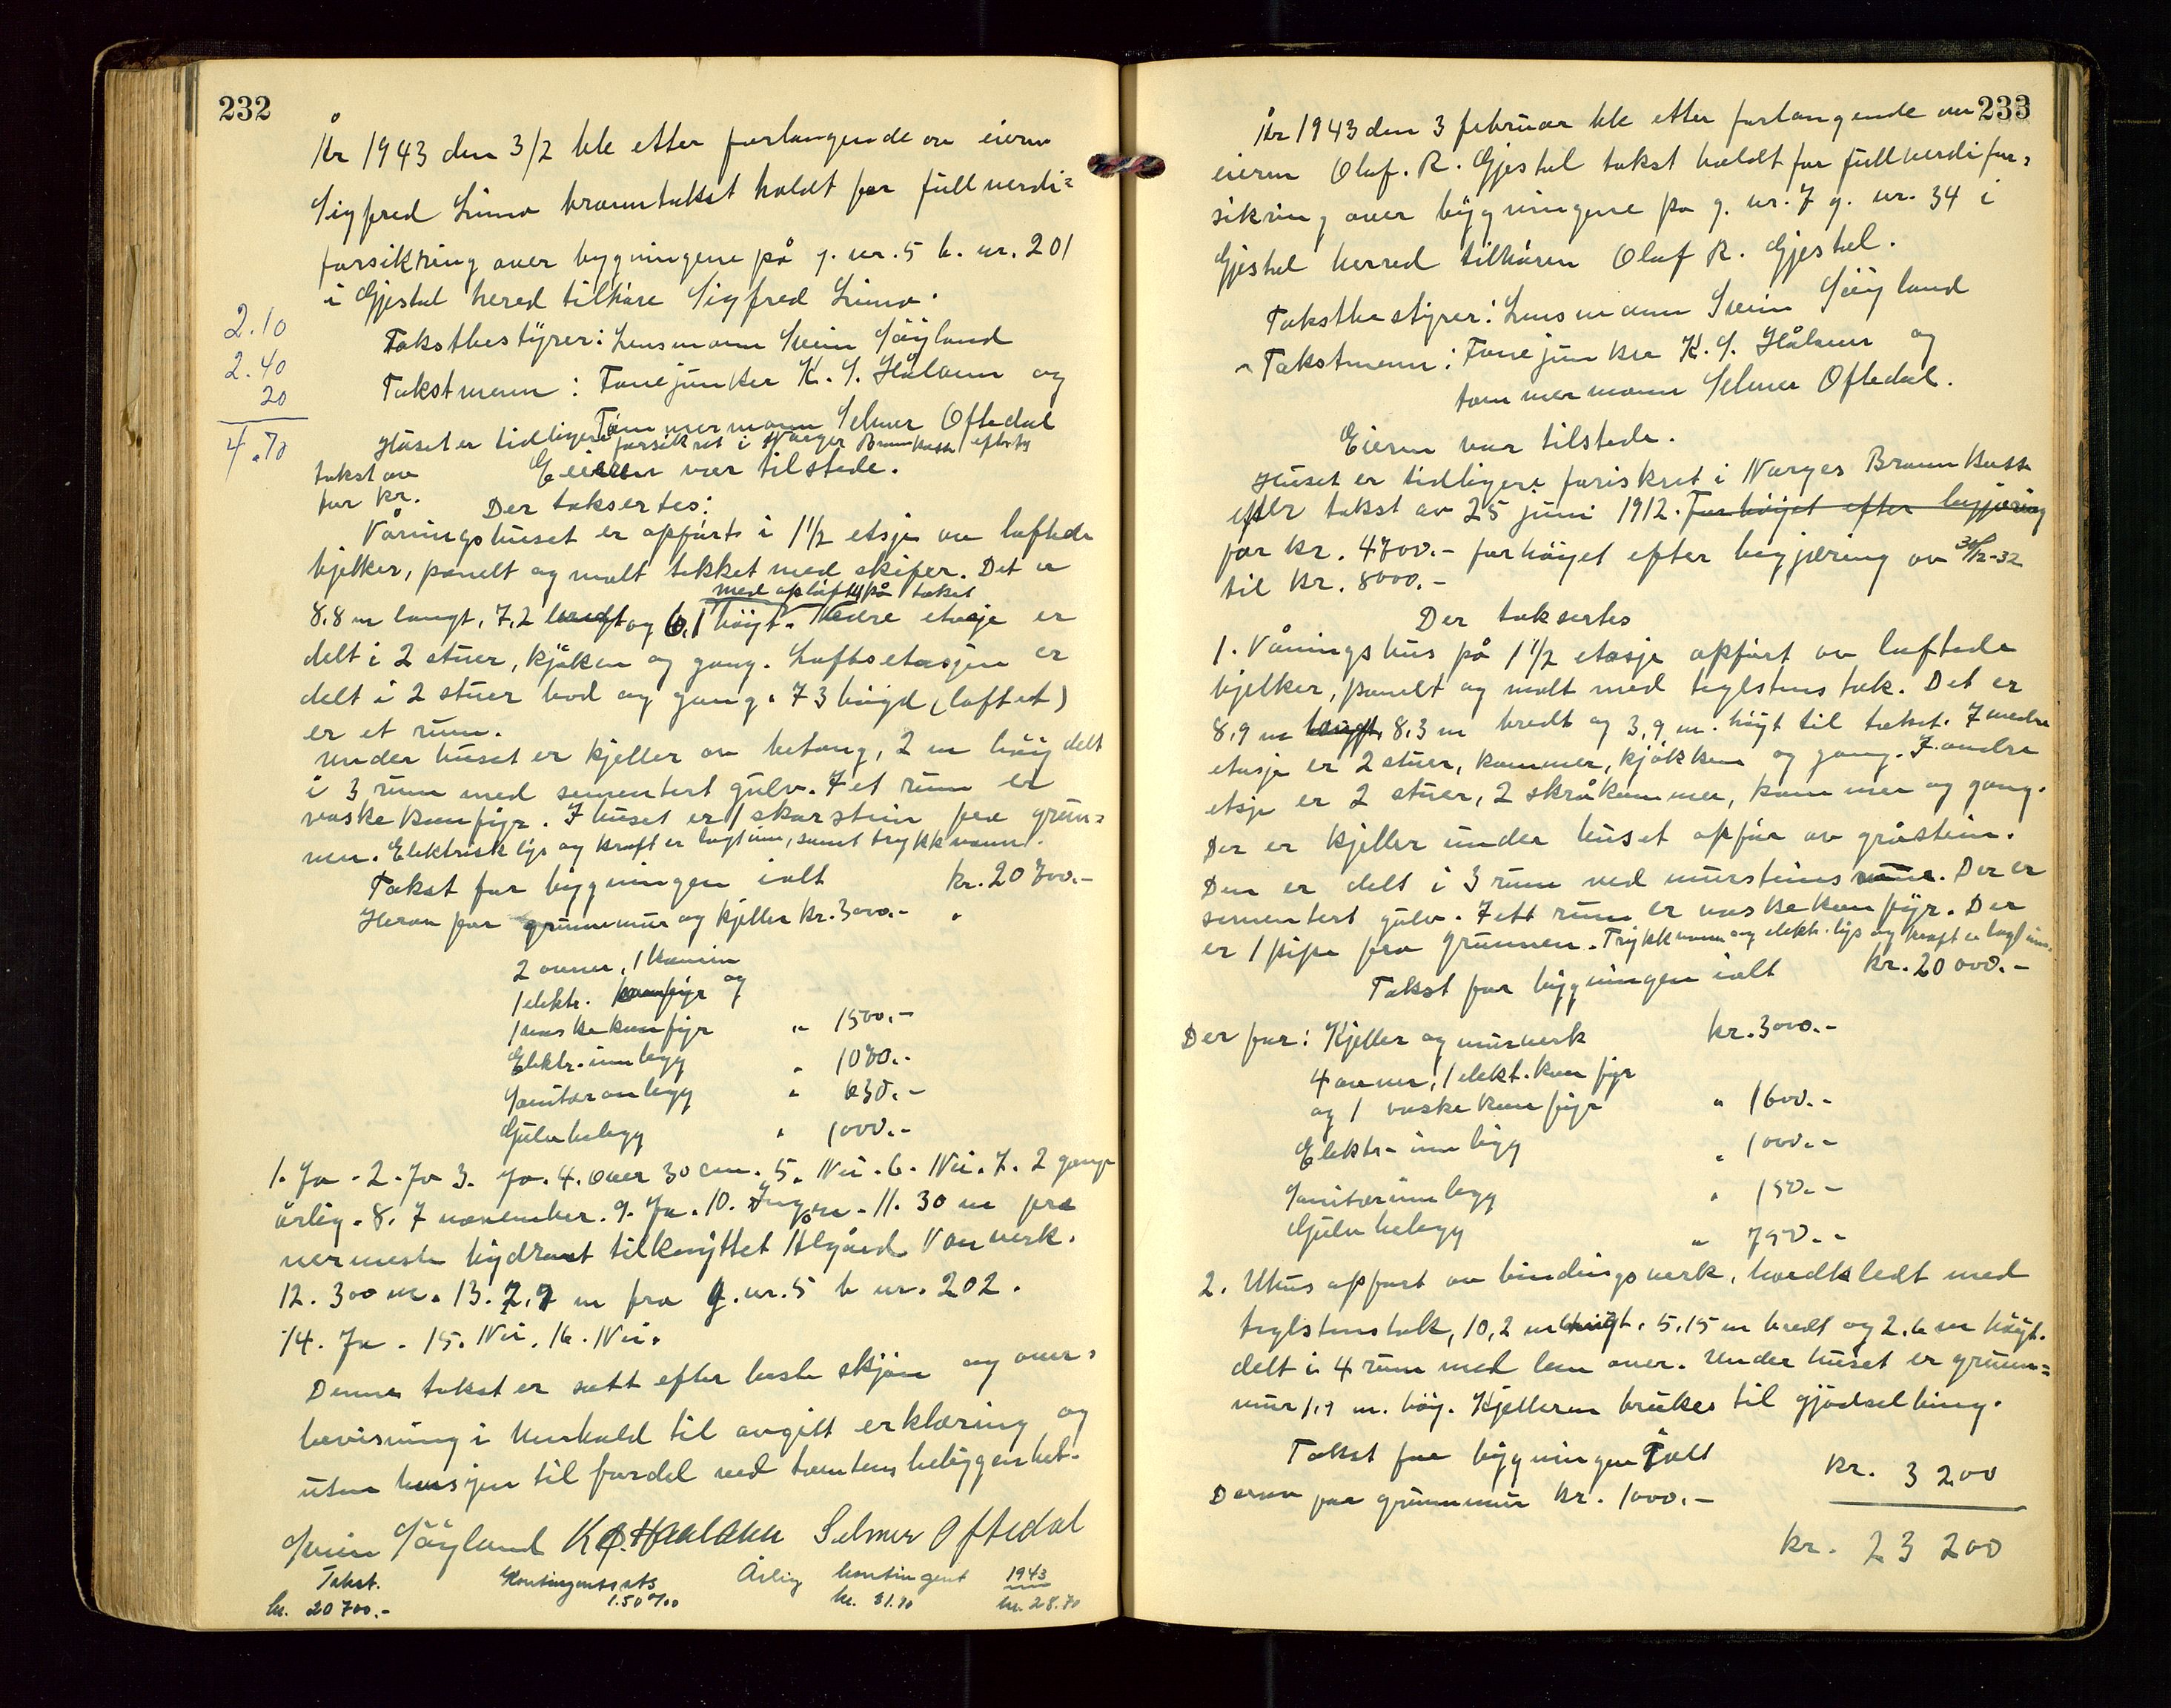 232
År 1943 den 3/2 ble etter forlangende av eieren
Sigfred Limo branntakst holdt for fullverdi=
forsikring over bygningene på g. nr. 5 b. nr. 201
i Gjestal hered tilhøre Sigfred Limo.
2.10
2.40
20
4.70
Takstbestyrer: Lensmann Svein Søyland
Takstmenn: Fanejunker K. S. Håland og
Tømmermann Selmer Oftedal
Huset er tidligere forsikret i Norges Brannkasse efter
takst av
for kr.
Eieren var tilstede.
Der taksertes:
Våningshuset er opført i 1 1/2 etsje av laftede
bjelker, panelt og malt tekket med skifer. Det er
med opløft på taket
8,8 m langt, 7,2 bredt og 6,1 høyt. Nedre etasje er
delt i 2 stuer, kjøken og gang. Loftsetasjen er
delt i 2 stuer bod og gang. I 3 høgd (loftet)
er et rum.
Under huset er kjeller av betong, 2 m høy delt
i 3 rum med sementert gulv. I et rum er
vaskekomfyr. I huset er 1 skorstein fra grun=
nen. Elektrisk lys og kraft er lagt inn, samt trykkvann.
Takst for bygningen ialt kr. 20700.-
Herav for grunnmur og kjeller kr. 3000.-
2 ovner, 1 kamin
1 elektr. komfyr og
1 vaskekomfyr " 1500.-
Elektr. innlegg " 1000.-
Sanitæranlegg " 630.-
Gulvbelegg " 1000.-
1. Ja. 2. Ja 3. Ja. 4. Over 30 cm. 5. Nei. 6. Nei. 7. 2 gange
årlig. 8. I november. 9. Ja. 10. Ingen. 11. 30 m fra
nermeste hydrant tilknyttet Ålgård Vannverk.
12. 300 m. 13. 7,7 m fra g. nr. 5 b nr. 202.
14. Ja. 15. Nei. 16. Nei.
Denne takst er satt efter beste skjøn og over=
bevisning i henhold til avgitt erklæring og
uten hensyn til fordel ved tomtens beliggenhet.
Svein Søyland K. S. Haaland Selmer Oftedal
Takst. Kontingentsats Årlig kontingent 1943
kr. 20700.- 1.50 ‰ kr. 31.10 kr. 28.70
233
År 1943 den 3 februar ble etter forlangende av
eieren Olaf. R. Gjestal takst holdt for fullverdifor=
sikring over bygningene på g. nr. 7 g. nr. 34 i
Gjestal herred tilhøren Olaf R. Gjestal.
Takstbestyrer: Lensmann Svein Søyland
Takstmenn: Fanejunker K. S. Håland og
tømmermann Selmer Oftedal.
Eieren var tilstede.
Huset er tidligere foriskret i Norges Brannkasse
efter takst av 25 juni 1912. Forhøiet efter begjæring
for kr. 4700.- forhøiet efter begjæring av 31/12-32
til kr. 8000.-
Der taksertes
1. Våningshus på 1 1/2 etasje opført av laftede
bjelker, panelt og malt med teglstens tak. Det er
8,9 m langt, 8,3 m bredt og 3,9 m. høyt til taket. I nedre
etasje er 2 stuer, kammer, kjøkken og gang. I andre
etsje er 2 stuer, 2 skråkammer, kammer og gang.
Der er kjeller under huset opført av gråstein.
Den er delt i 3 rum ved mursteins mur. Der er
sementert gulv. I ett rum er vaskekomfyr. Der
er 1 pipe fra grunnen. Trykkvann og elektr. lys og kraft er lagt inn.
Takst for bygningen ialt kr. 20000.-
Der for: Kjeller og murverk kr. 3000.-
4 ovner, 1 elekt. komfyr
og 1 vaskekomfyr " 1600.-
Elektr- innlegg " 1000.-
Sanitærinnlegg " 150.-
Gulvbelegg " 790.-
2. Uthus opført av bindingsverk, bordkledt med
teglstenstak, 10,2 m langt, 5,15 m bredt og 2,6 m høyt.
delt i 4 rum med lem over. Under huset er grunn=
mur 1,9 m. høy. Kjelleren brukes til gjødselbing.
Takst for bygningen Ialt kr. 3200
Derav for grunnmur kr. 1000.-
kr. 23200